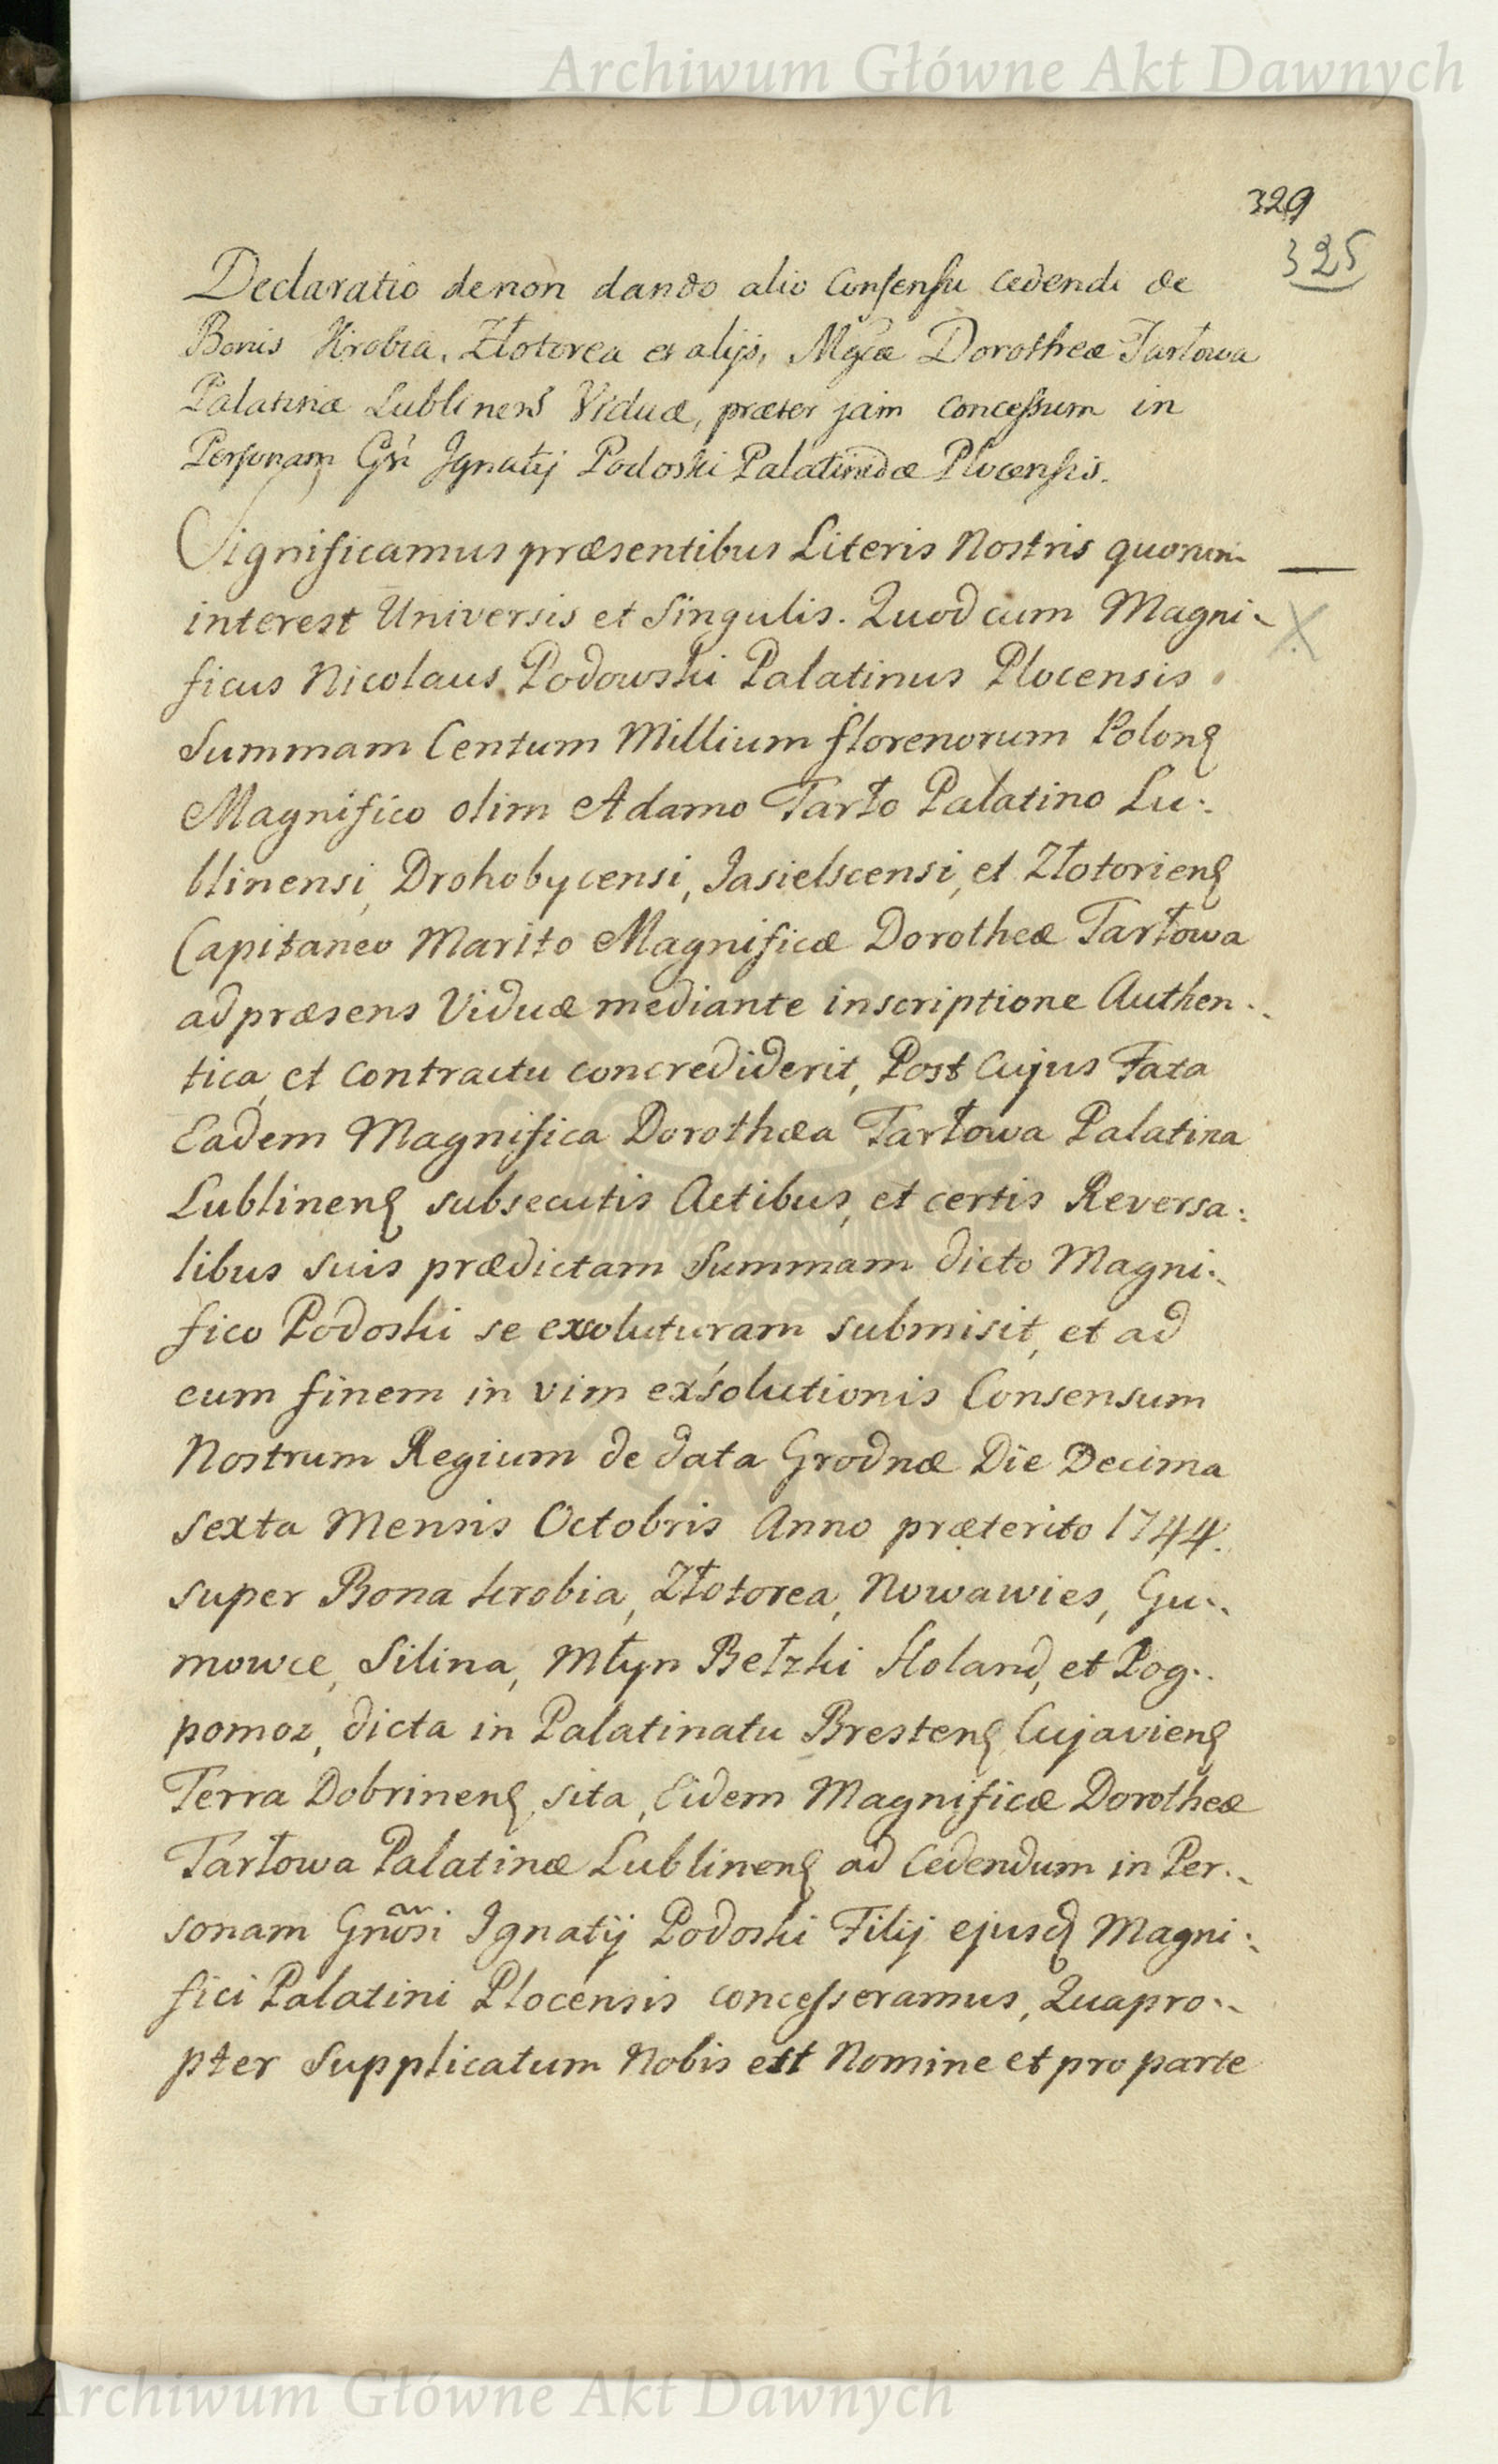 Archiwum Główne Akt Dawnych
329
325
Declaratio de non dando alio Consensu cedendi de
Bonis Krobia, Złotorea et alijs, Mgcæ Dorotheæ Tarłowa
Palatinæ Lublinens Viduæ, præter jam concessum in
Personam Gsi Ignatij Podoski Palatinidæ Plocensis.
Significamus præsentibus Literis Nostris quorum
interest Universis et Singulis. Quod cum Magni-
ficus Nicolaus Podowski Palatinus Plocensis
Summam Centum Millium florenorum Polonę
Magnifico olim Adamo Tarło Palatino Lu:
blinensi, Drohobycensi, Jasielscensi, et Złotorienę
Capitaneo Marito Magnificæ Dorotheæ Tarłowa
ad præsens Viduæ mediante inscriptione Authen:
tica, et contractu concrediderit, Post Cujus Fata
Eadem Magnifica Dorothæa Tarłowa Palatina
Lublinenę subsecutis Actibus, et certis Reversa:
libus suis prædictam Summam dicto Magni:
fico Podoski se exsoluturam submisit, et ad
eum finem in vim exsolutionis Consensum
Nostrum Regium de data Grodnæ Die Decima
sexta Mensis Octobris Anno præterito 1744.
super Bona Krobia, Złotorea, Nowawies, Gu:
mowce, Silina, Młyn Bełzki Holand, et Pog:
pomoz, dicta in Palatinatu Brestenę Cujavienę
Terra Dobrinenę sita, Eidem Magnificæ Dorotheæ
Tarłowa Palatinæ Lublinenę ad Cedendum in Per:
sonam Gnosi Ignatij Podoski Filij ejusdę Magni:
fici Palatini Plocensis concesseramus, Quapro:
pter Supplicatum Nobis est Nomine et pro parte
Archiwum Główne Akt Dawnych